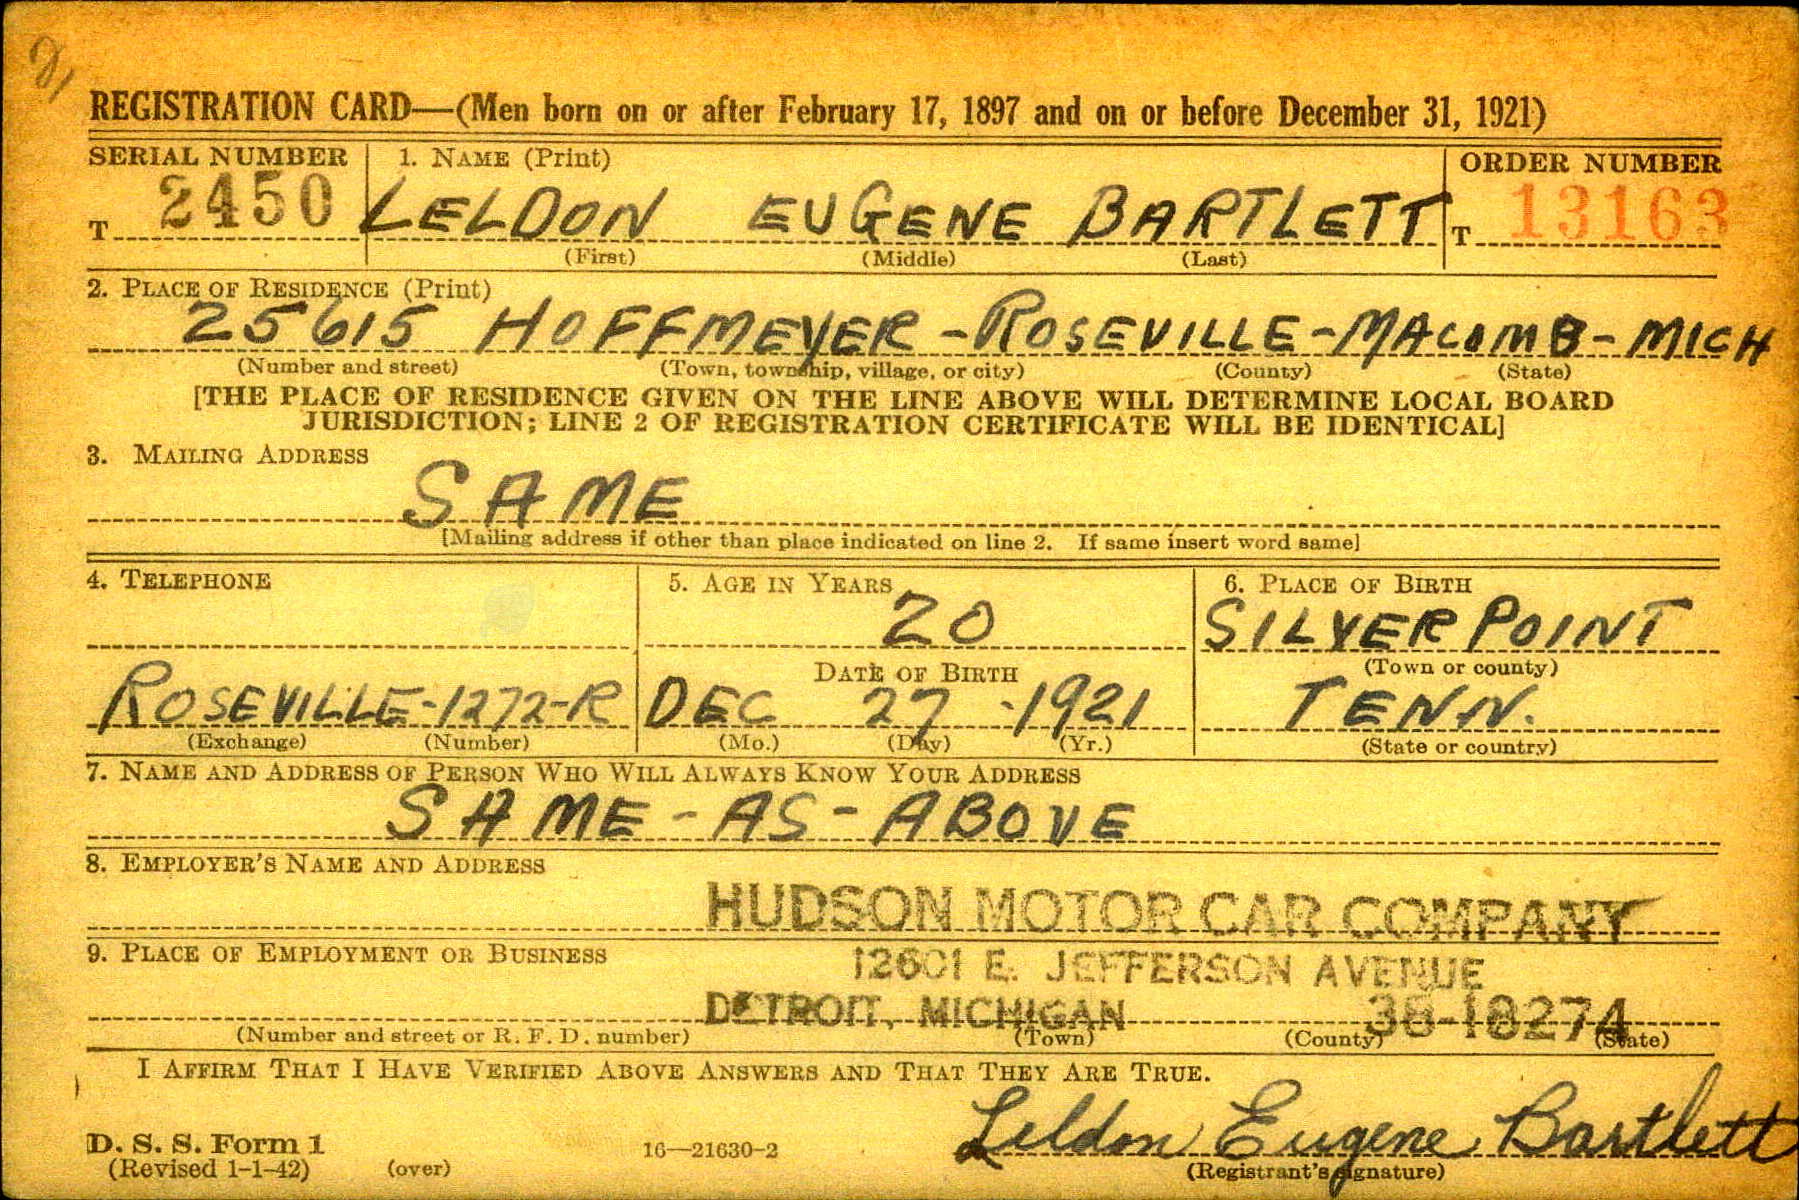 REGISTRATION CARD—(Men born on or after February 17, 1897 and on or before December 31, 1921)
SERIAL NUMBER 1. NAME (Print) ORDER NUMBER
T 2450 LELDON EUGENE BARTLETT T 13163
(First) (Middle) (Last)
2. PLACE OF RESIDENCE (Print)
25615 HOFFMEYER - ROSEVILLE - MACOMB - MICH
(Number and street) (Town, township, village, or city) (County) (State)
[THE PLACE OF RESIDENCE GIVEN ON THE LINE ABOVE WILL DETERMINE LOCAL BOARD
JURISDICTION; LINE 2 OF REGISTRATION CERTIFICATE WILL BE IDENTICAL]
3. MAILING ADDRESS
SAME
[Mailing address if other than place indicated on line 2. If same insert word same]
4. TELEPHONE 5. AGE IN YEARS 6. PLACE OF BIRTH
20 SILVER POINT
DATE OF BIRTH (Town or county)
ROSEVILLE-1272-R DEC 27 -1921 TENN.
(Exchange) (Number) (Mo.) (Day) (Yr.) (State or country)
7. NAME AND ADDRESS OF PERSON WHO WILL ALWAYS KNOW YOUR ADDRESS
SAME - AS - ABOVE
8. EMPLOYER'S NAME AND ADDRESS
HUDSON MOTOR CAR COMPANY
9. PLACE OF EMPLOYMENT OR BUSINESS 12601 E. JEFFERSON AVENUE
DETROIT, MICHIGAN 38-18274
(Number and street or R. F. D. number) (Town) (County) (State)
I AFFIRM THAT I HAVE VERIFIED ABOVE ANSWERS AND THAT THEY ARE TRUE.
Leldon Eugene Bartlett
D. S. S. Form 1 16—21630-2
(Revised 1-1-42) (over) (Registrant's signature)